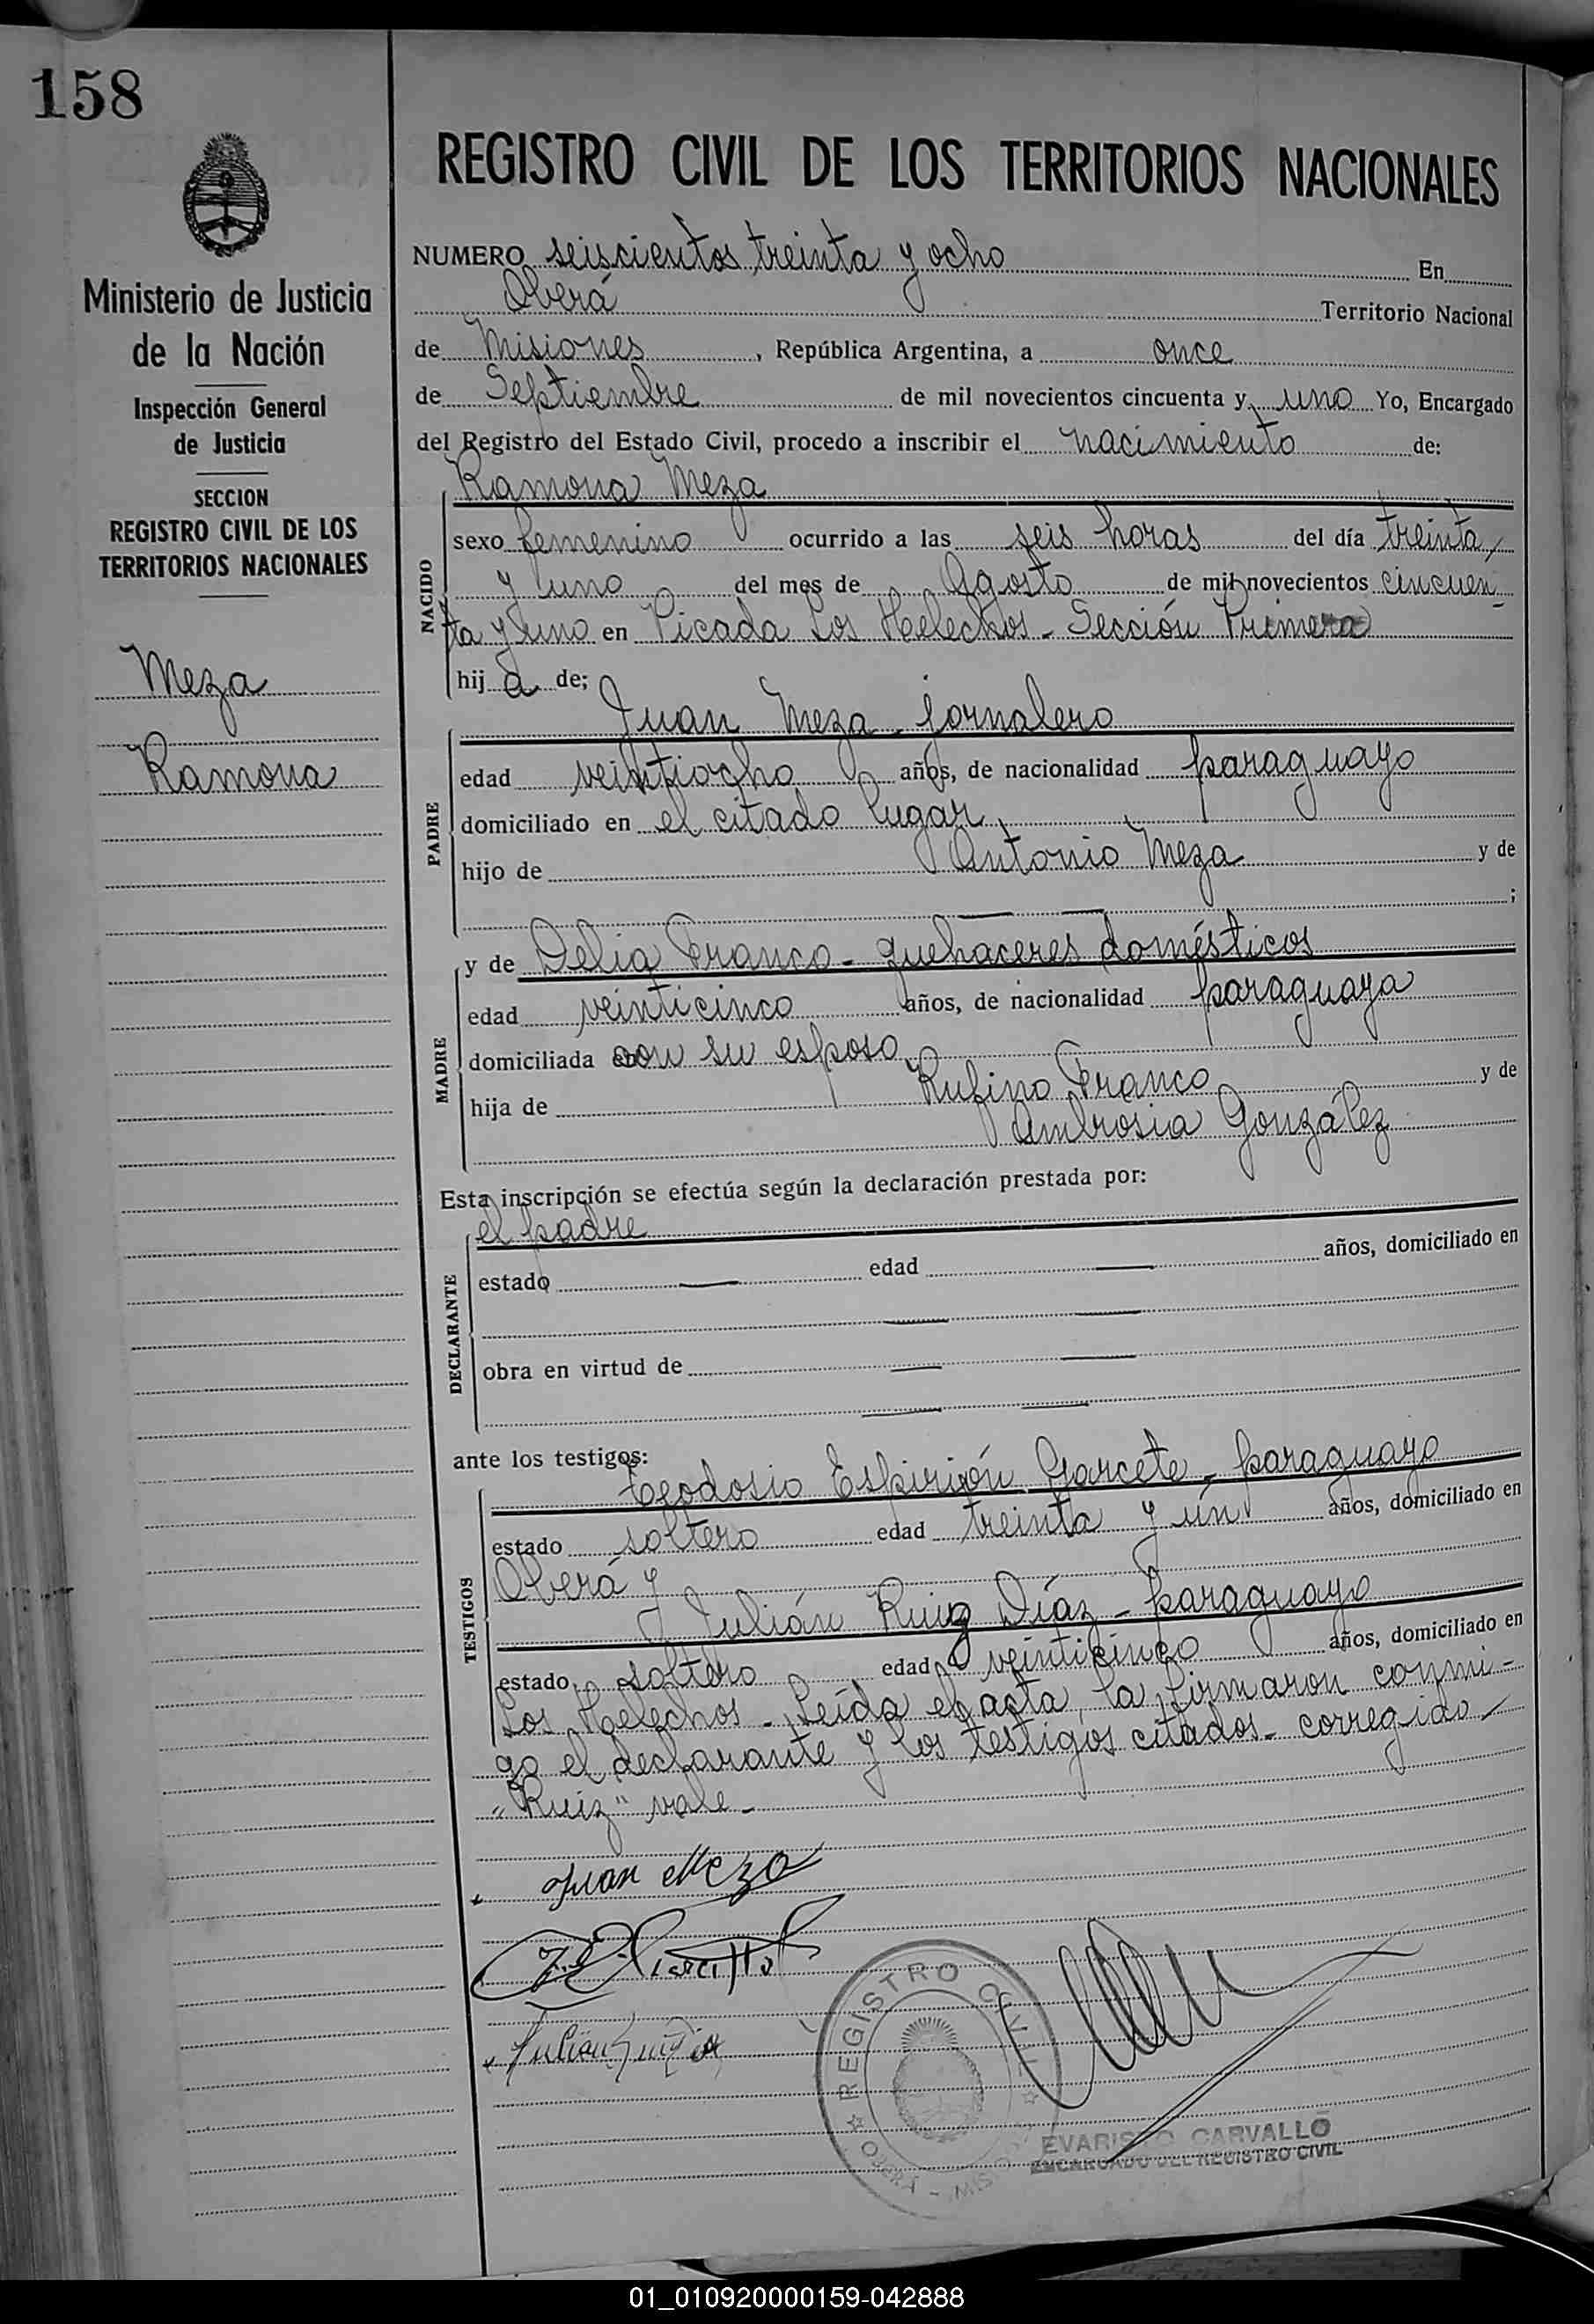 158
Ministerio de Justicia
de la Nación
Inspección General
de Justicia
SECCION
REGISTRO CIVIL DE LOS
TERRITORIOS NACIONALES
Meza
Ramona
REGISTRO CIVIL DE LOS TERRITORIOS NACIONALES
NUMERO seiscientos treinta y ocho En
Oberá Territorio Nacional
de Misiones, República Argentina, a once
de Septiembre de mil novecientos cincuenta y uno Yo, Encargado
del Registro del Estado Civil, procedo a inscribir el nacimiento de:
Ramona Meza
NACIDO
sexo femenino ocurrido a las seis horas del día treinta
y uno del mes de Agosto de mil novecientos cincuen-
ta y uno en Picada Los Helechos - Sección Primera
hija de;
PADRE
Juan Meza - jornalero
edad veintiocho años, de nacionalidad paraguayo
domiciliado en el citado lugar
hijo de Antonio Meza y de
;
MADRE
y de Delia Franco - quehaceres domésticos
edad veinticinco años, de nacionalidad paraguaya
domiciliada con su esposo
hija de Rufino Franco y de
Ambrosia González
Esta inscripción se efectúa según la declaración prestada por:
el padre
DECLARANTE
estado — edad — años, domiciliado en
— —
obra en virtud de — —
— —
ante los testigos:
TESTIGOS
Teodosio Espirión Garcete - paraguayo
estado soltero edad treinta y ún años, domiciliado en
Oberá y
Julián Ruiz Díaz - paraguayo
estado soltero edad veinticinco años, domiciliado en
Los Helechos - Leída el acta, la firmaron conmi-
go el declarante y los testigos citados - corregido -
"Ruiz" vale -
Juan Meza
Julian Ruiz Diaz
REGISTRO CIVIL
OBERA - MISIONES
EVARISTO CARVALLO
ENCARGADO DEL REGISTRO CIVIL
01_010920000159-042888